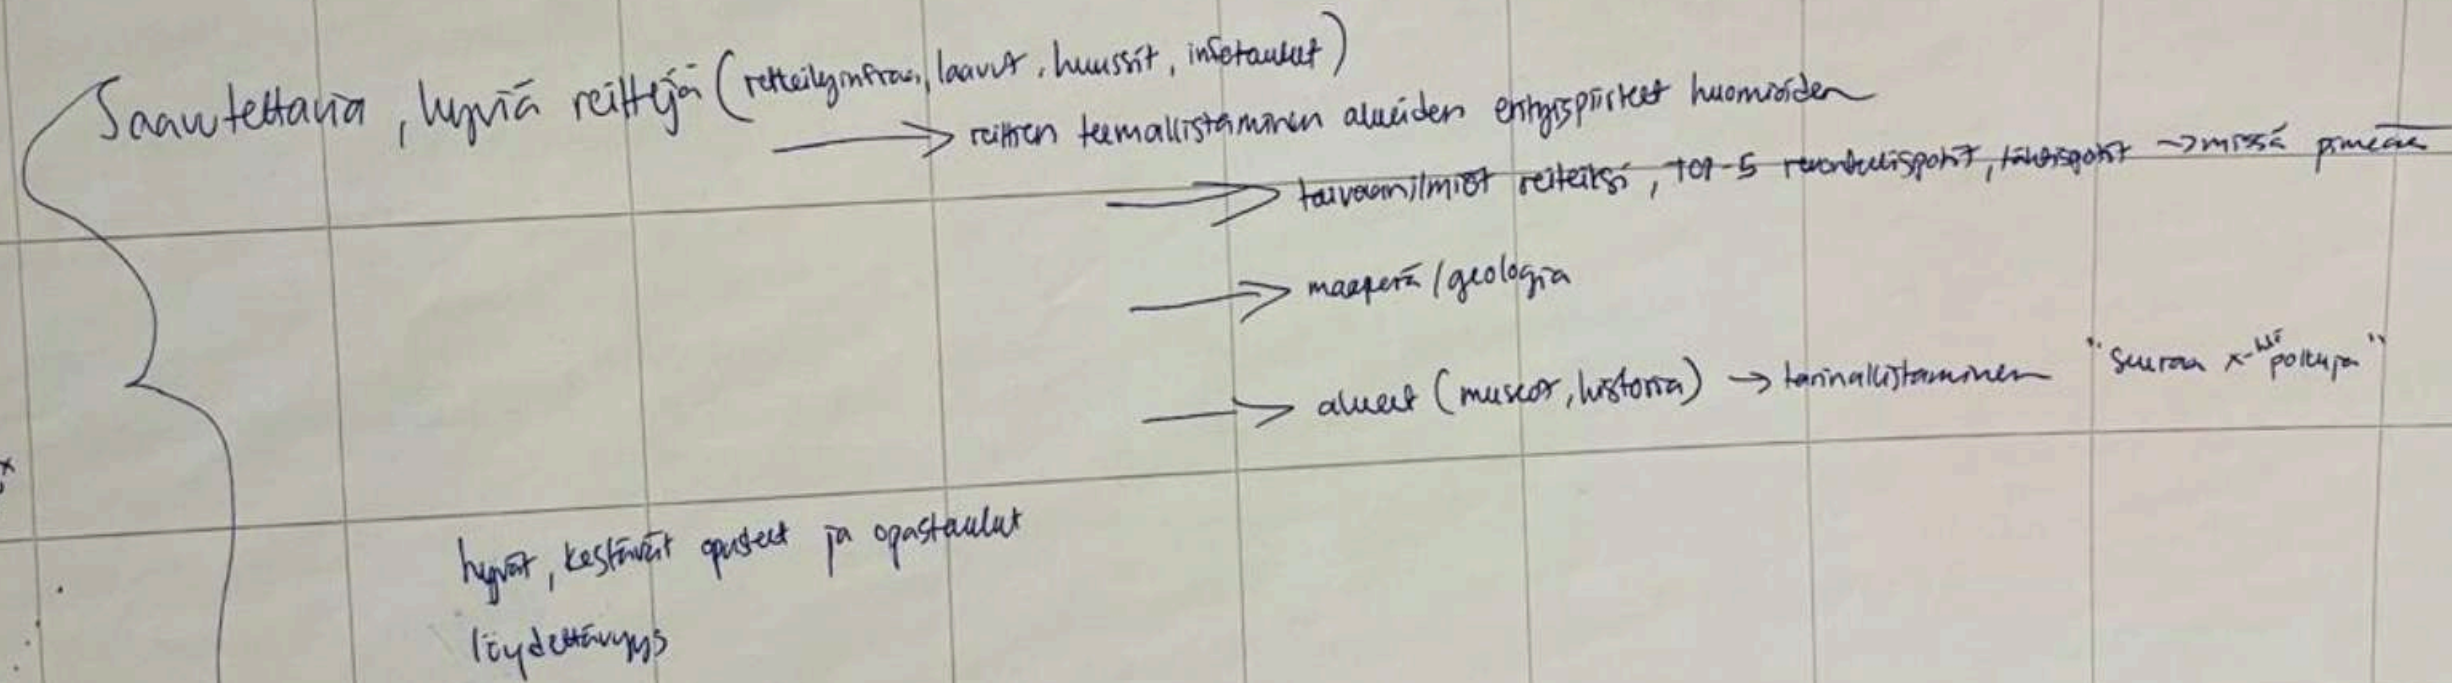 Saavutettavia, hyviä reittejä (retkeilyinfraa, laavut, huussit, infotaulut)
→ reittien teemallistaminen alueiden erityispiirteet huomioiden
→ taivaanilmiöt reiteiksi, TOP-5 revontulispotit, tähtispotit → missä pimeää
→ maaperä / geologia
→ alueet (museot, historia) → tarinallistaminen "Seuraa x- polkuja"
hyvät, kestävät opasteet ja opastaulut
löydettävyys